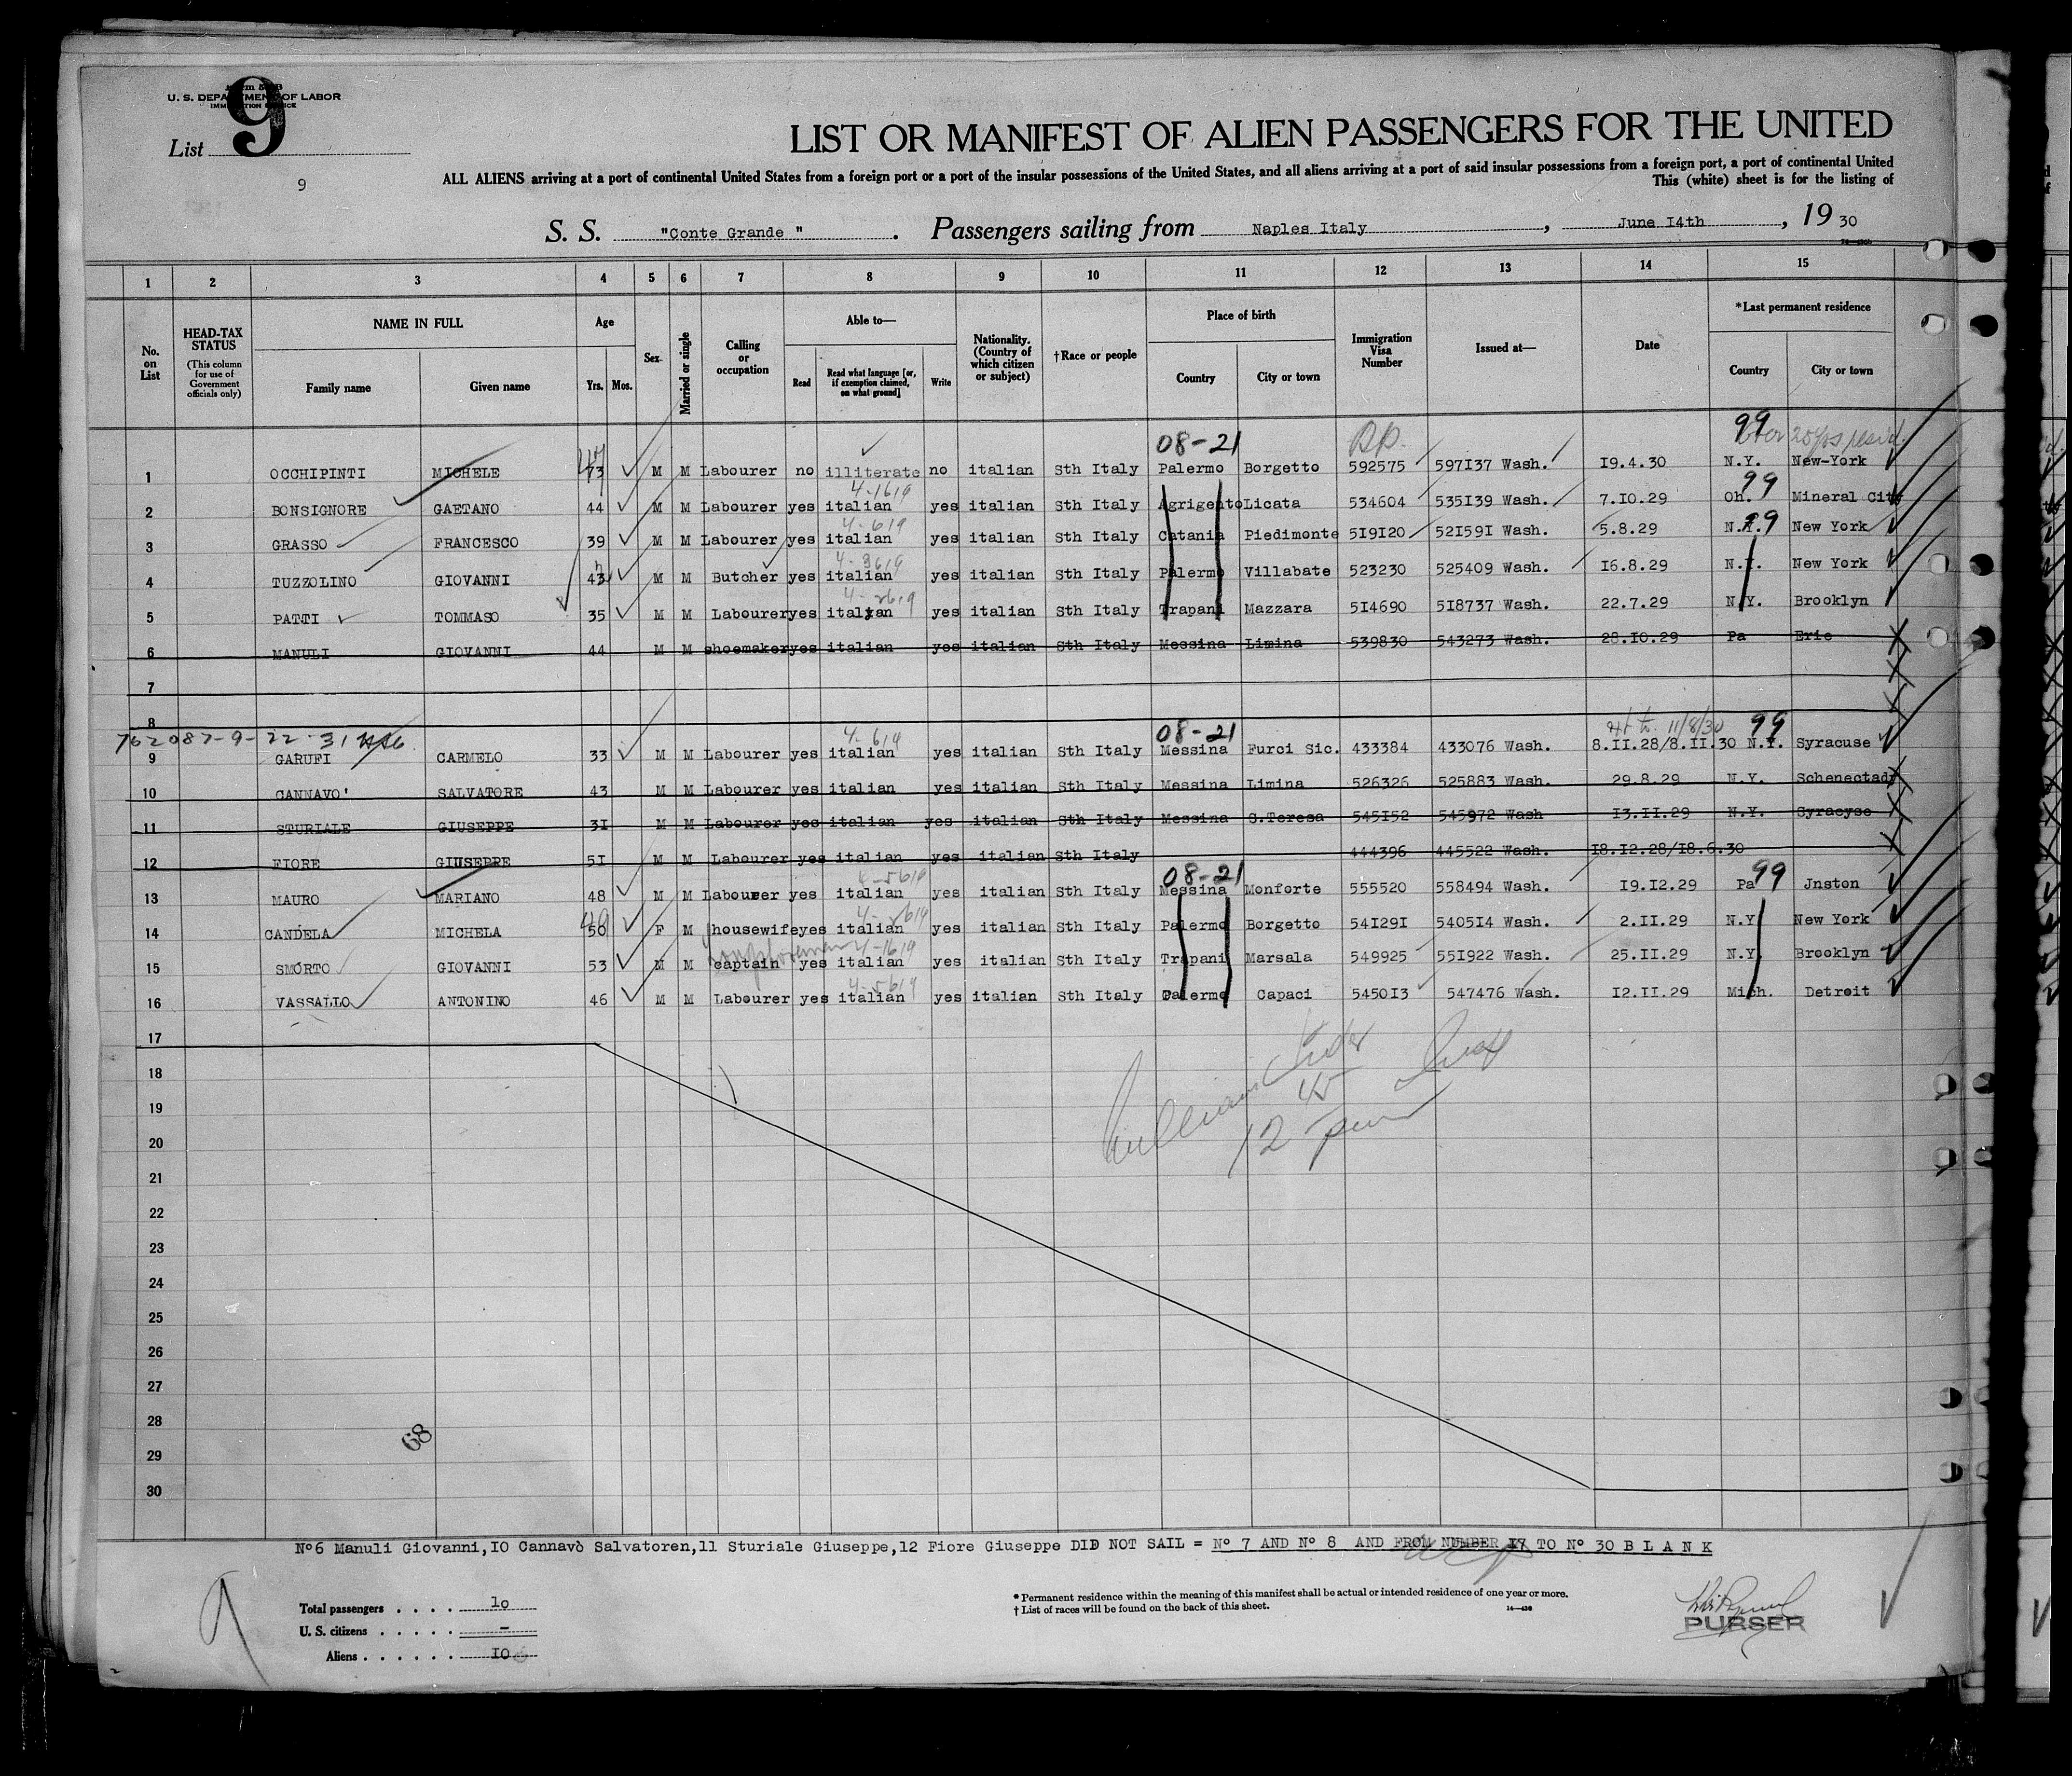 Form 500 B
U. S. DEPARTMENT OF LABOR
IMMIGRATION SERVICE
List 9
9
LIST OR MANIFEST OF ALIEN PASSENGERS FOR THE UNITED
ALL ALIENS arriving at a port of continental United States from a foreign port or a port of the insular possessions of the United States, and all aliens arriving at a port of said insular possessions from a foreign port, a port of continental United
This (white) sheet is for the listing of
S. S. "Conte Grande ". Passengers sailing from Naples Italy, June I4th, 19 30
1 2 3 4 5 6 7 8 9 10 11 12 13 14 15
No. on List
HEAD-TAX STATUS (This column for use of Government officials only)
NAME IN FULL Family name Given name
Age Yrs. Mos.
Sex
Married or single
Calling or occupation
Able to— Read Read what language [or, if exemption claimed, on what ground] Write
Nationality. (Country of which citizen or subject)
†Race or people
Place of birth Country City or town
Immigration Visa Number
Issued at—
Date
*Last permanent residence Country City or town
08-21 99
1 OCCHIPINTI MICHELE 47 M M Labourer no illiterate no italian Sth Italy Palermo Borgetto 592575 597I37 Wash. I9.4.30 N.Y. New-York
4-1619 99
2 BONSIGNORE GAETANO 44 M M Labourer yes italian yes italian Sth Italy Agrigento Licata 534604 535I39 Wash. 7.I0.29 Oh. Mineral City
4-619 99
3 GRASSO FRANCESCO 39 M M Labourer yes italian yes italian Sth Italy Catania Piedimonte 5I9I20 52I59I Wash. 5.8.29 N.Y. New York
4-3619
4 TUZZOLINO GIOVANNI 43 M M Butcher yes italian yes italian Sth Italy Palermo Villabate 523230 525409 Wash. I6.8.29 N.Y. New York
4-2619
5 PATTI TOMMASO 35 M M Labourer yes italian yes italian Sth Italy Trapani Mazzara 5I4690 5I8737 Wash. 22.7.29 N.Y. Brooklyn
6 MANULI GIOVANNI 44 M M shoemaker yes italian yes italian Sth Italy Messina Limina 539830 543273 Wash. 28.I0.29 Pa Erie
7
8
762087-9-22-31 4-619 08-21 11/8/30 99
9 GARUFI CARMELO 33 M M Labourer yes italian yes italian Sth Italy Messina Furci Sic. 433384 433076 Wash. 8.II.28/8.II.30 N.Y. Syracuse
10 CANNAVO' SALVATORE 43 M M Labourer yes italian yes italian Sth Italy Messina Limina 526326 525883 Wash. 29.8.29 N.Y. Schenectady
11 STURIALE GIUSEPPE 3I M M Labourer yes italian yes italian Sth Italy Messina S.Teresa 545I52 545972 Wash I3.II.29 N.Y. Syracyse
12 FIORE GIUSEPPE 5I M M Labourer yes italian yes italian Sth Italy 444396 445522 Wash. I8.I2.28/I8.6.30
4-5619 08-21 99
13 MAURO MARIANO 48 M M Labourer yes italian yes italian Sth Italy Messina Monforte 555520 558494 Wash. I9.I2.29 Pa Jnston
49 4-2619
14 CANDELA MICHELA 50 F M housewife yes italian yes italian Sth Italy Palermo Borgetto 54I29I 5405I4 Wash. 2.II.29 N.Y New York
4-1619
15 SMORTO GIOVANNI 53 M M captain yes italian yes italian Sth Italy Trapani Marsala 549925 55I922 Wash. 25.II.29 N.Y. Brooklyn
4-5619
16 VASSALLO ANTONINO 46 M M Labourer yes italian yes italian Sth Italy Palermo Capaci 5450I3 547476 Wash. I2.II.29 Mich. Detroit
17
18
19
20
21
22
23
24
25
26
27
28
29
30
45
12
68
Nº6 Manuli Giovanni,I0 Cannavò Salvatoren,11 Sturiale Giuseppe,12 Fiore Giuseppe DID NOT SAIL = Nº 7 AND Nº 8 AND FROM NUMBER 17 TO Nº 30 B L A N K
9
Total passengers . . . . 1o
U. S. citizens . . . . . –
Aliens . . . . . . I0
* Permanent residence within the meaning of this manifest shall be actual or intended residence of one year or more.
† List of races will be found on the back of this sheet.
PURSER